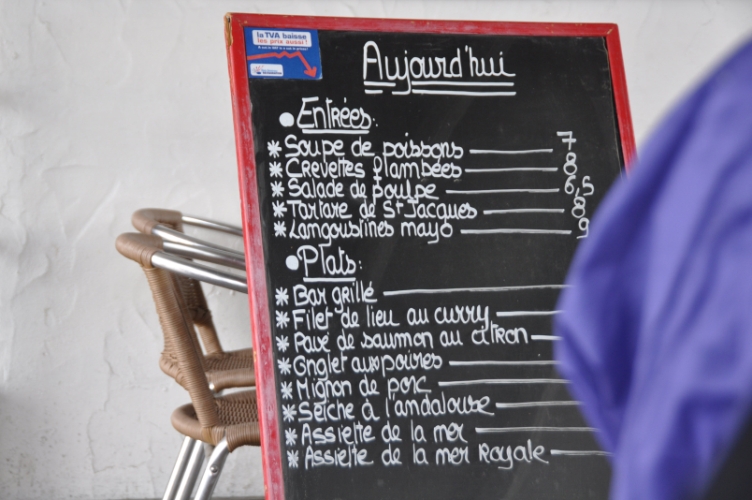 la TVA baisse
les prix aussi !
Aujourd'hui
• Entrées:
* Soupe de poissons 7
* Crevettes flambées 8
* Salade de poulpe 6,5
* Tartare de St Jacques 8
* Langoustines mayo 9
• Plats:
* Bar grillé
* Filet de lieu au curry
* Pavé de saumon au citron
* Onglet aux poivres
* Mignon de porc
* Seiche à l'andalouse
* Assiette de la mer
* Assiette de la mer Royale